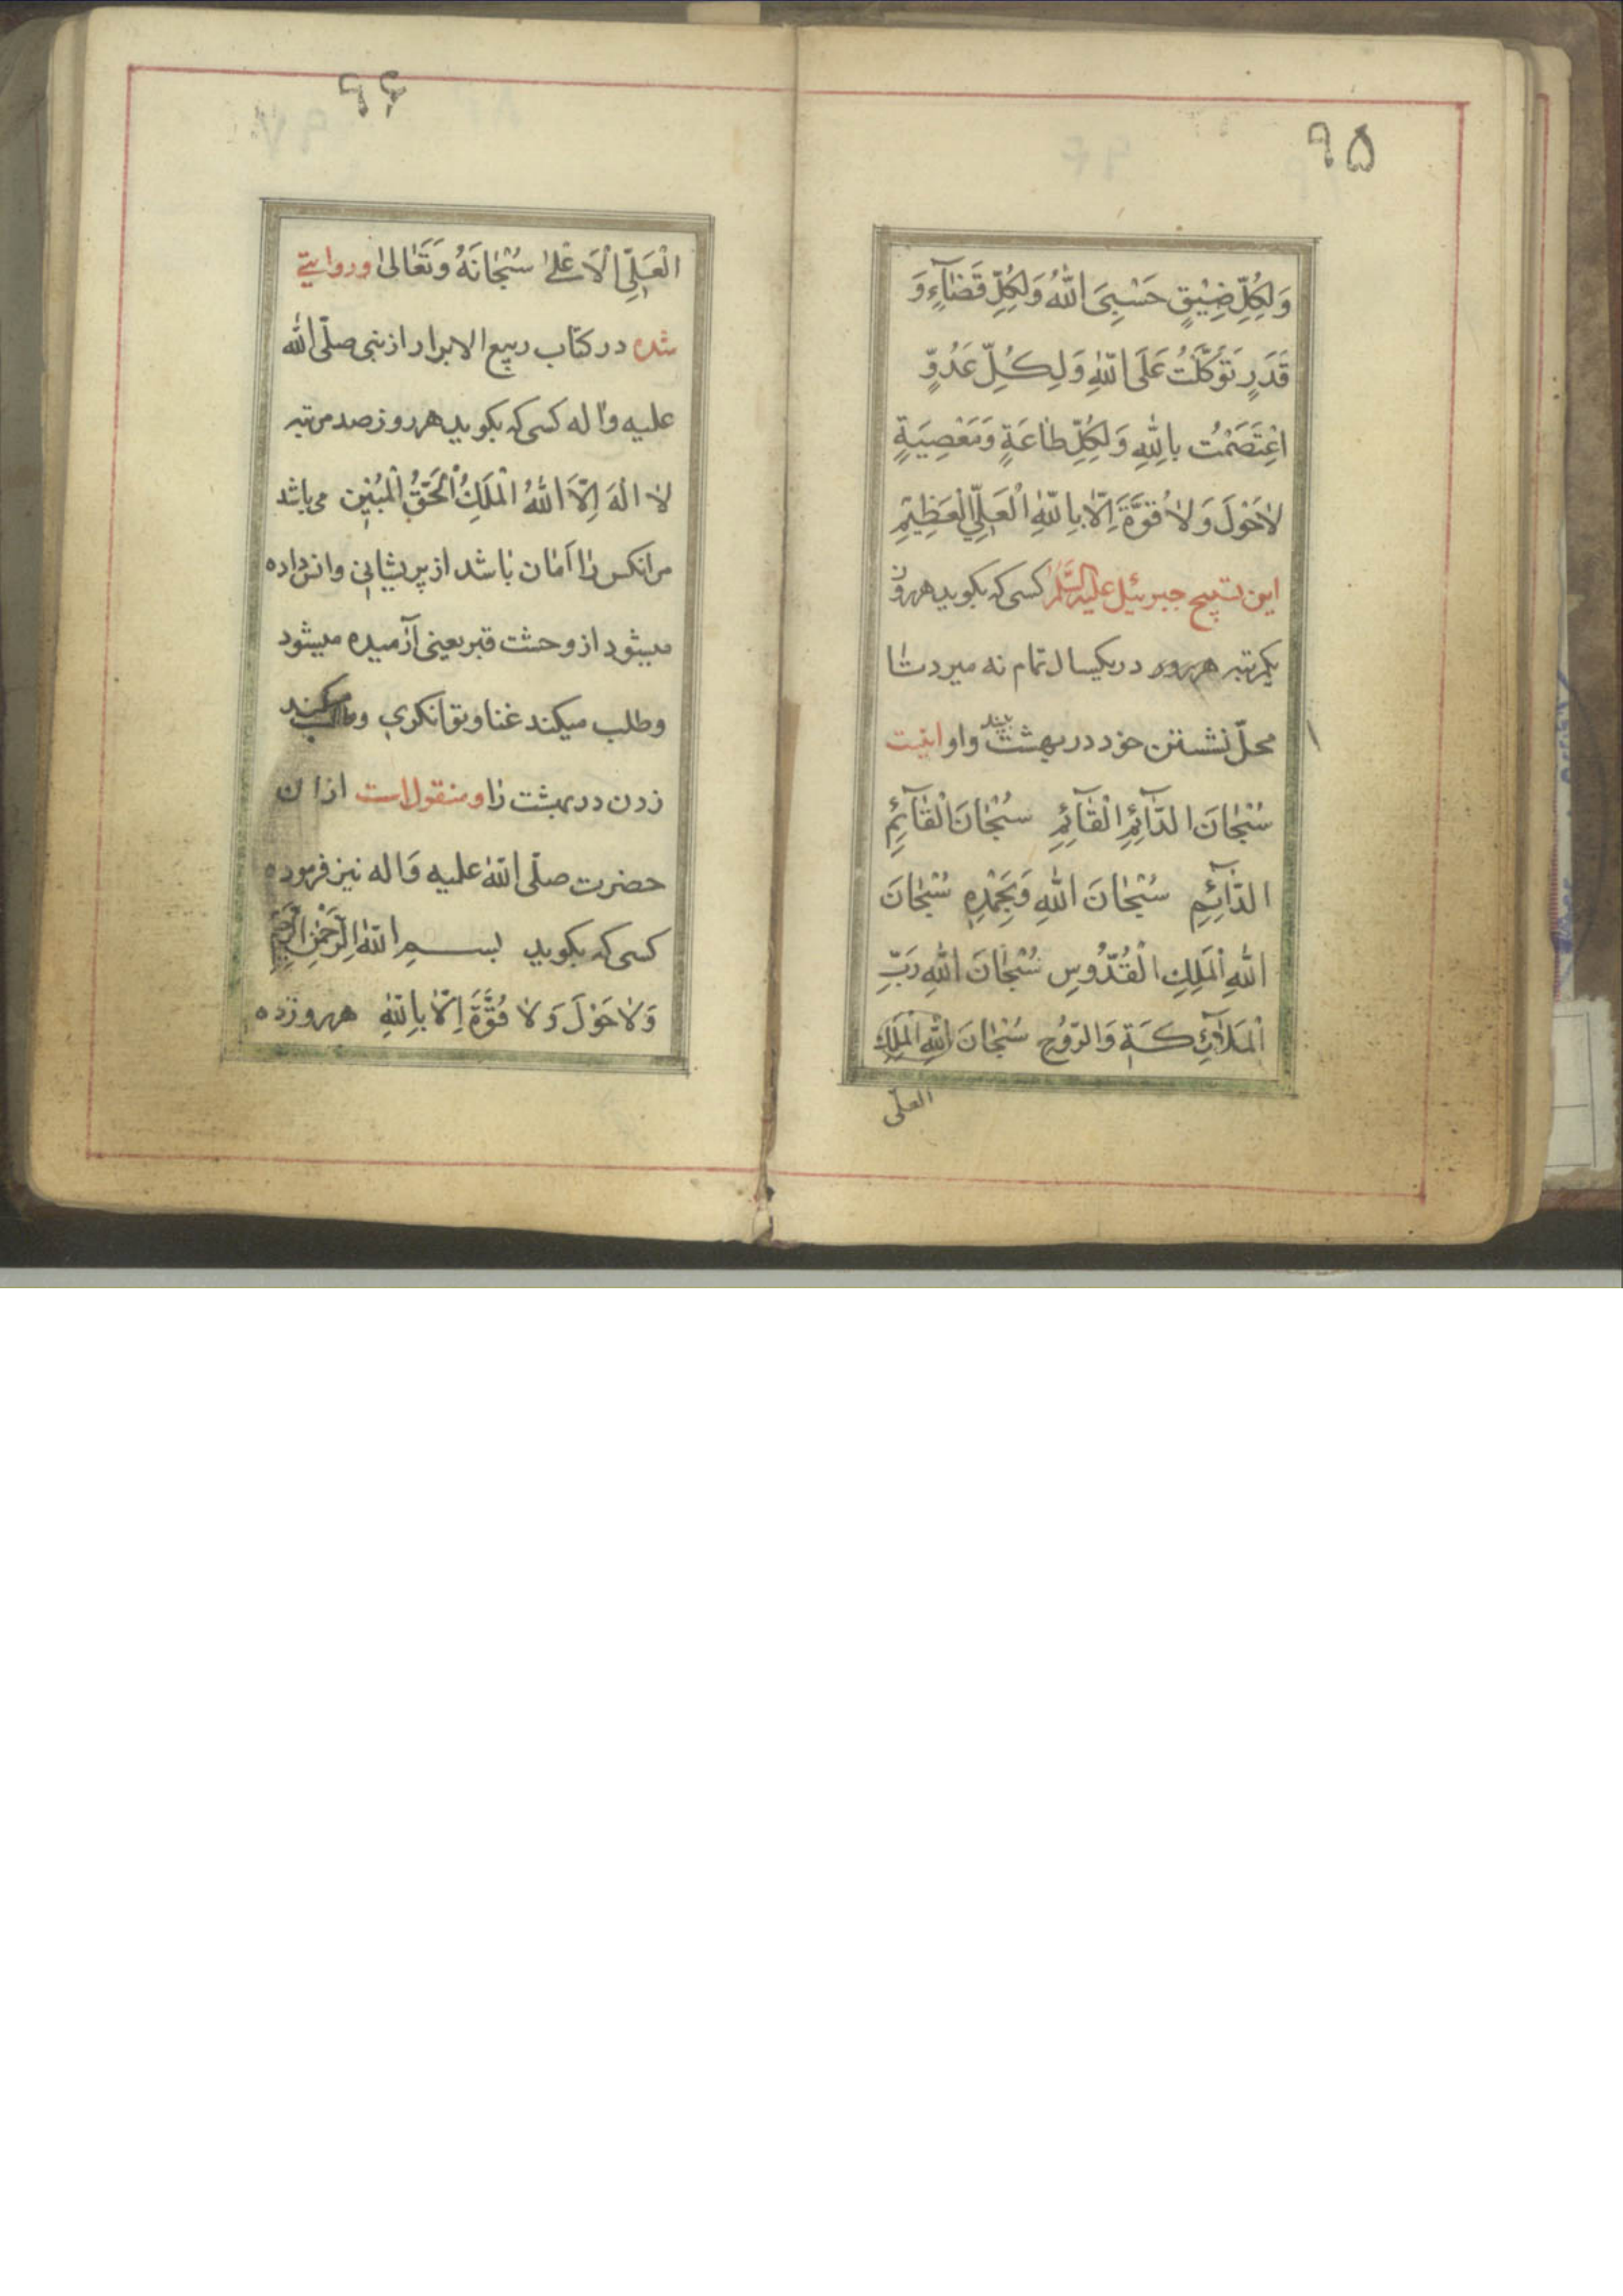 ۹۵
وَلِكُلِّ ضِيْقٍ حَسْبِىَ اللّٰهُ وَلِكُلِّ قَضٰآءٍ وَ
قَدَرٍ تَوَكَّلْتُ عَلَى اللّٰهِ وَلِكُلِّ عَدُوٍّ
اعْتَصَمْتُ بِاللّٰهِ وَلِكُلِّ طٰاعَةٍ وَمَعْصِيَةٍ
لاٰحَوْلَ وَلاٰ قُوَّةَ اِلّاٰ بِاللّٰهِ الْعَلِىِّ الْعَظِيْمِ
این تسبیح جبرئیل علیه السّلٰم کسی که بکوید هرروز
یکمرتبه هرروز در یکسال تمام نه میرد تٰا
محلّ نشستن خود در بهشت بیند واو اینست
سُبْحٰانَ الدّٰآئِمِ الْقٰآئِمِ سُبْحٰانَ الْقٰآئِمِ
الدّٰآئِمِ سُبْحٰانَ اللّٰهِ وَبِحَمْدِهِ سُبْحٰانَ
اللّٰهِ الْمَلِكِ الْقُدُّوسِ سُبْحٰانَ اللّٰهِ رَبِّ
الْمَلاٰئِكَةِ وَالرُّوْحِ سُبْحٰانَ اللّٰهِ الْمَلِكِ
العلّی
۹۶
الْعَلِىِّ الْاَعْلىٰ سُبْحٰانَهُ وَتَعٰالىٰ وروایتی
شده در کتاب ربیع الابرار از نبی صلّی الله
علیه واٰله کسی که بکوید هرروز صد مرتبه
لاٰ اِلٰهَ اِلّاَ اللّٰهُ الْمَلِكُ الْحَقُّ الْمُبِيْنِ می باشد
مرانکس رٰا اَمٰان بٰاشد از پریشٰانی وانس داده
میشود از وحشت قبر یعنی آرٰمیده میشود
وطلب میکند غنا وتوٰانکری وطلب میکند
زدن در بهشت رٰا ومنقول است ازان
حضرت صلّی اللّٰه علیه وَاله نیز فرموده
کسی که بکوید بسمِ اللّٰهِ الرَّحْمٰنِ الرَّحِيْمِ
وَلاٰحَوْلَ وَلاٰ قُوَّةَ اِلّاٰ بِاللّٰهِ هرروز ده